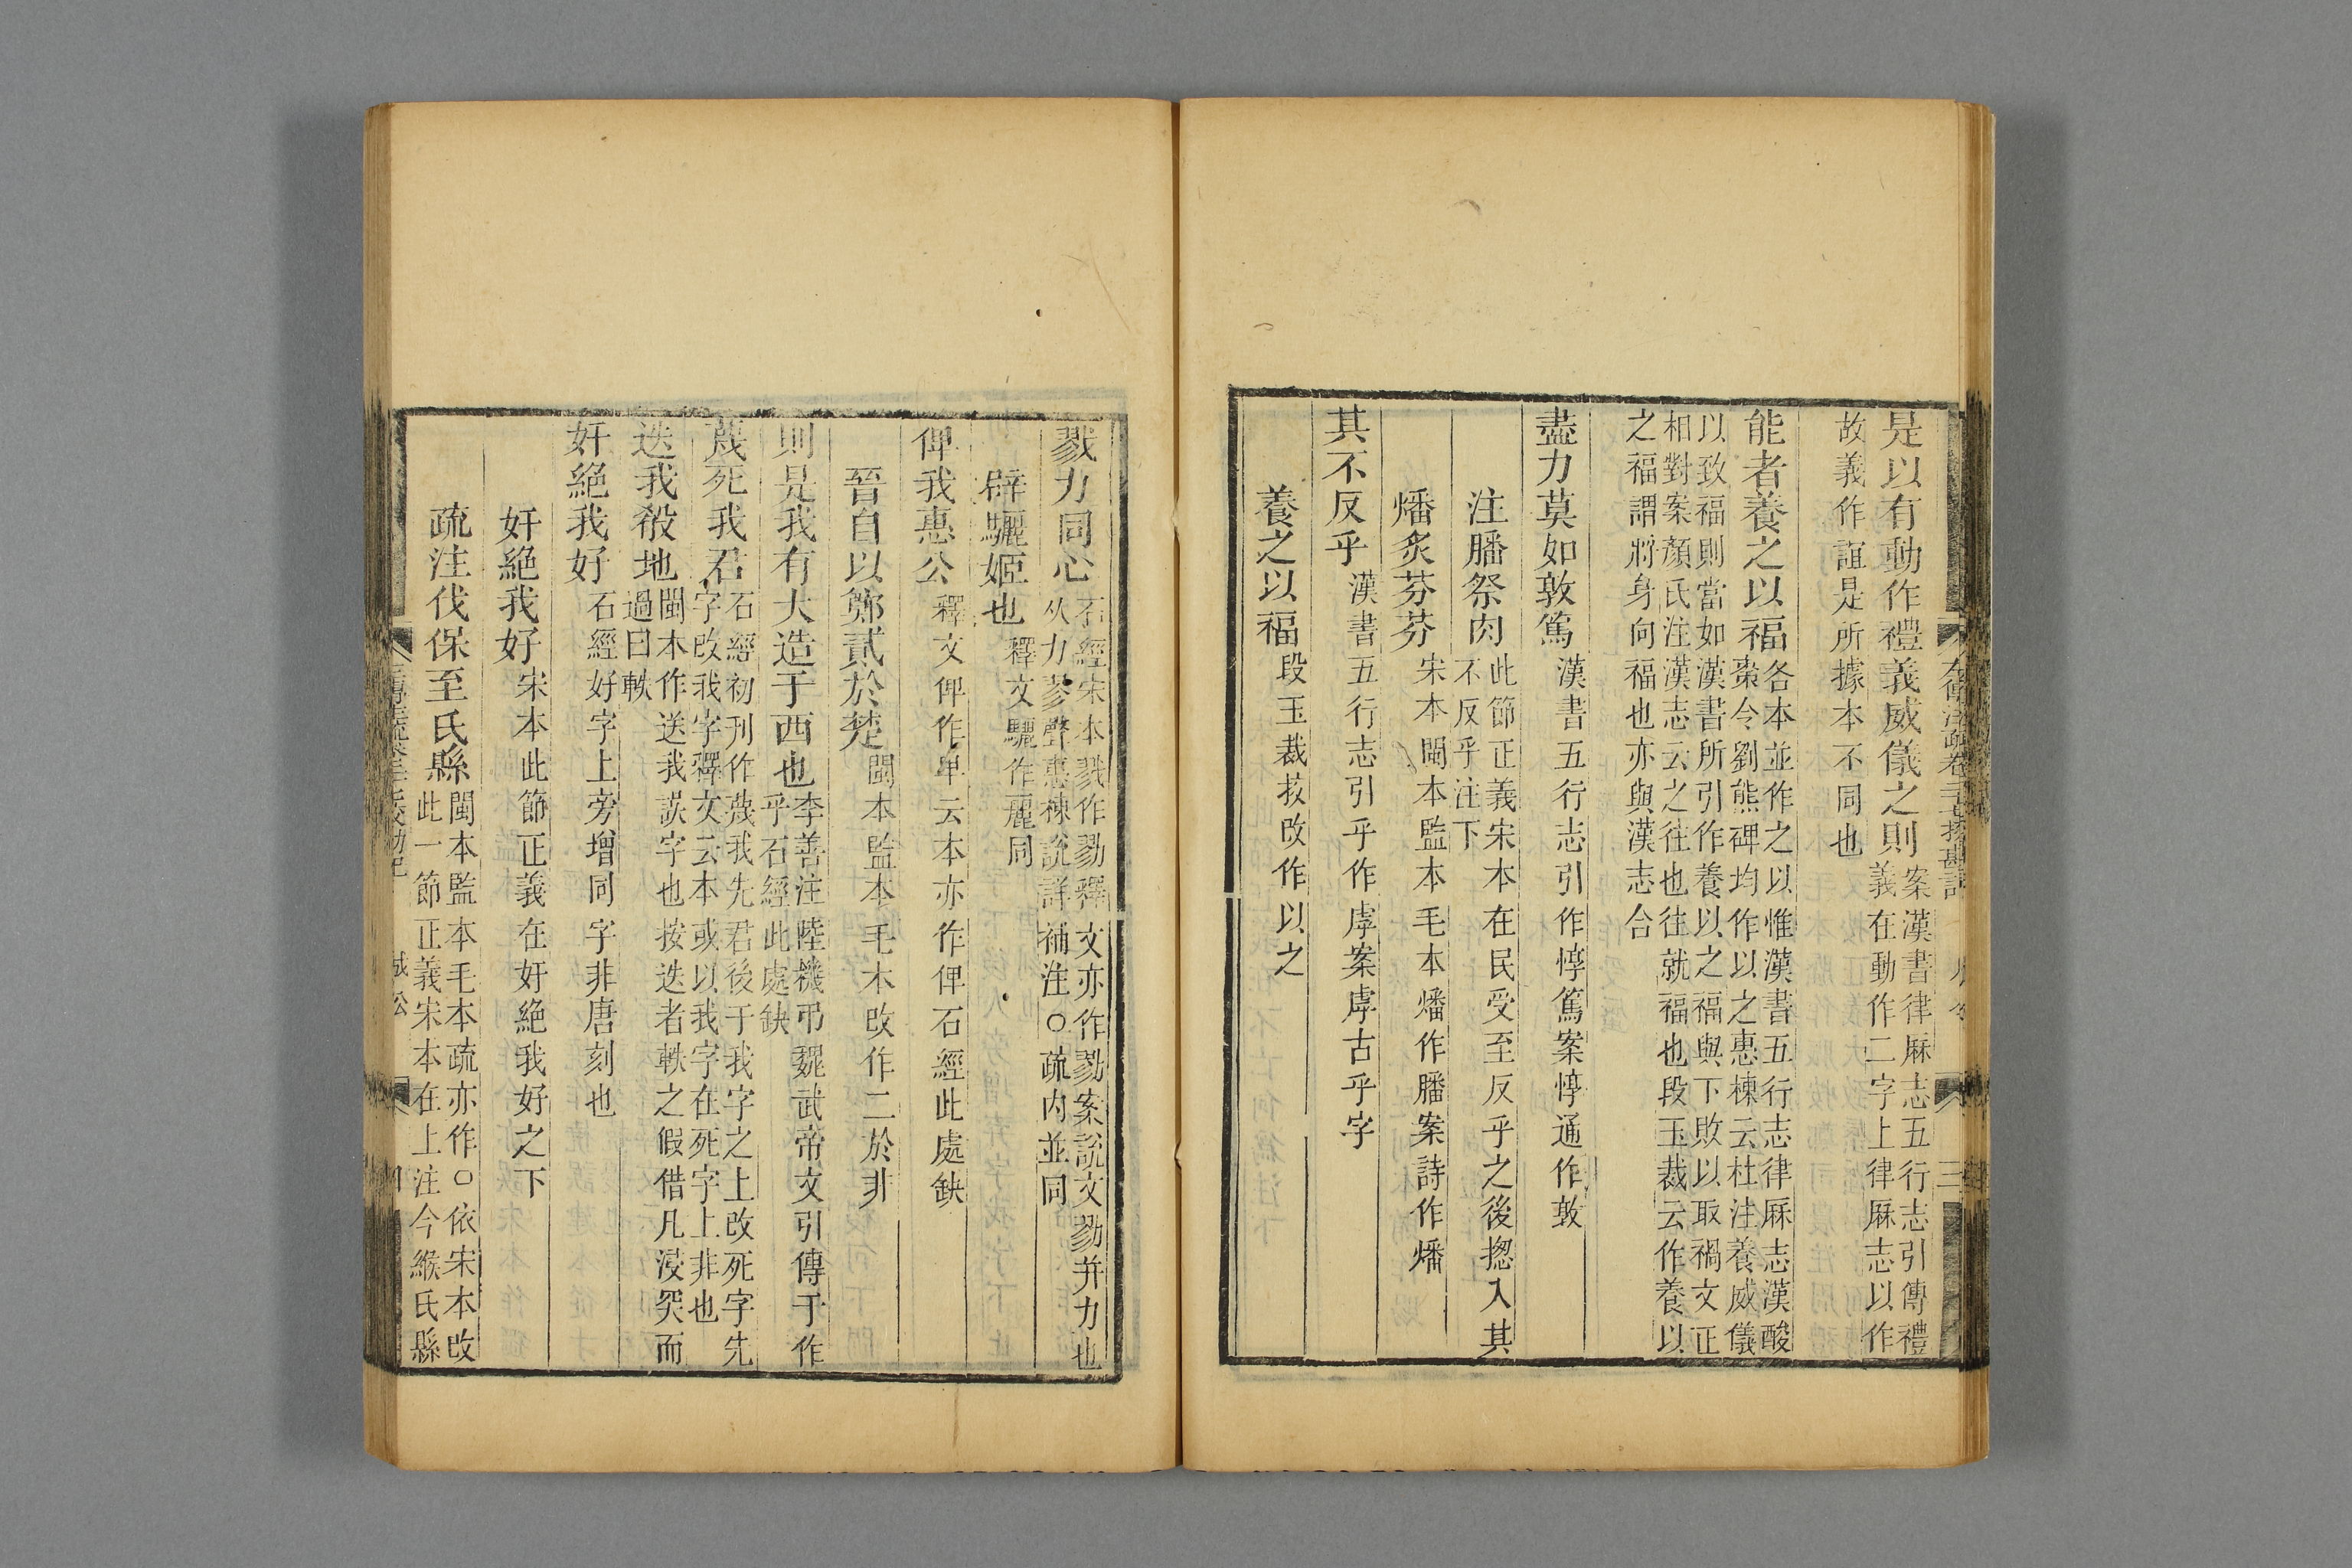 是以有動作禮義威儀之則案漢書律厤志五行志引傳禮義在動作二字上律厤志以作
故義作誼是所據本不同也
能者養之以福各本並作之以惟漢書五行志律厤志漢酸棗令劉熊碑均作以之惠棟云杜注養威儀
以致福則當如漢書所引作養以之福與下敗以取禍文正相對案顏氏注漢志云之往也往就福也段玉裁云作養以
之福謂將身向福也亦與漢志合
盡力莫如敦篤漢書五行志引作惇篤案惇通作敦
注膰祭肉此節正義宋本在民受至反乎之後揔入其不反乎注下
燔炙芬芬宋本閩本監本毛本燔作膰案詩作燔
其不反乎漢書五行志引乎作虖案虖古乎字
養之以福段玉裁挍改作以之
戮力同心石經宋本戮作勠釋文亦作勠案說文勠并力也从力翏聲惠棟說詳補注○疏內並同
辟驪姬也釋文驪作麗同
俾我惠公釋文俾作卑云本亦作俾石經此處缺
晉自以鄭貳於楚閩本監本毛本改作二於非
則是我有大造于西也李善注陸機弔魏武帝文引傳于作乎石經此處缺
蔑死我君石經初刊作蔑我先君後于我字之上改死字先字改我字釋文云本或以我字在死字上非也
迭我殽地閩本作送我誤字也按迭者軼之假借凡浸突而過曰軼
奸絕我好石經好字上旁增同字非唐刻也
奸絕我好宋本此節正義在奸絕我好之下
疏注伐保至氏縣閩本監本毛本疏亦作○依宋本改此一節正義宋本在上注今緱氏縣